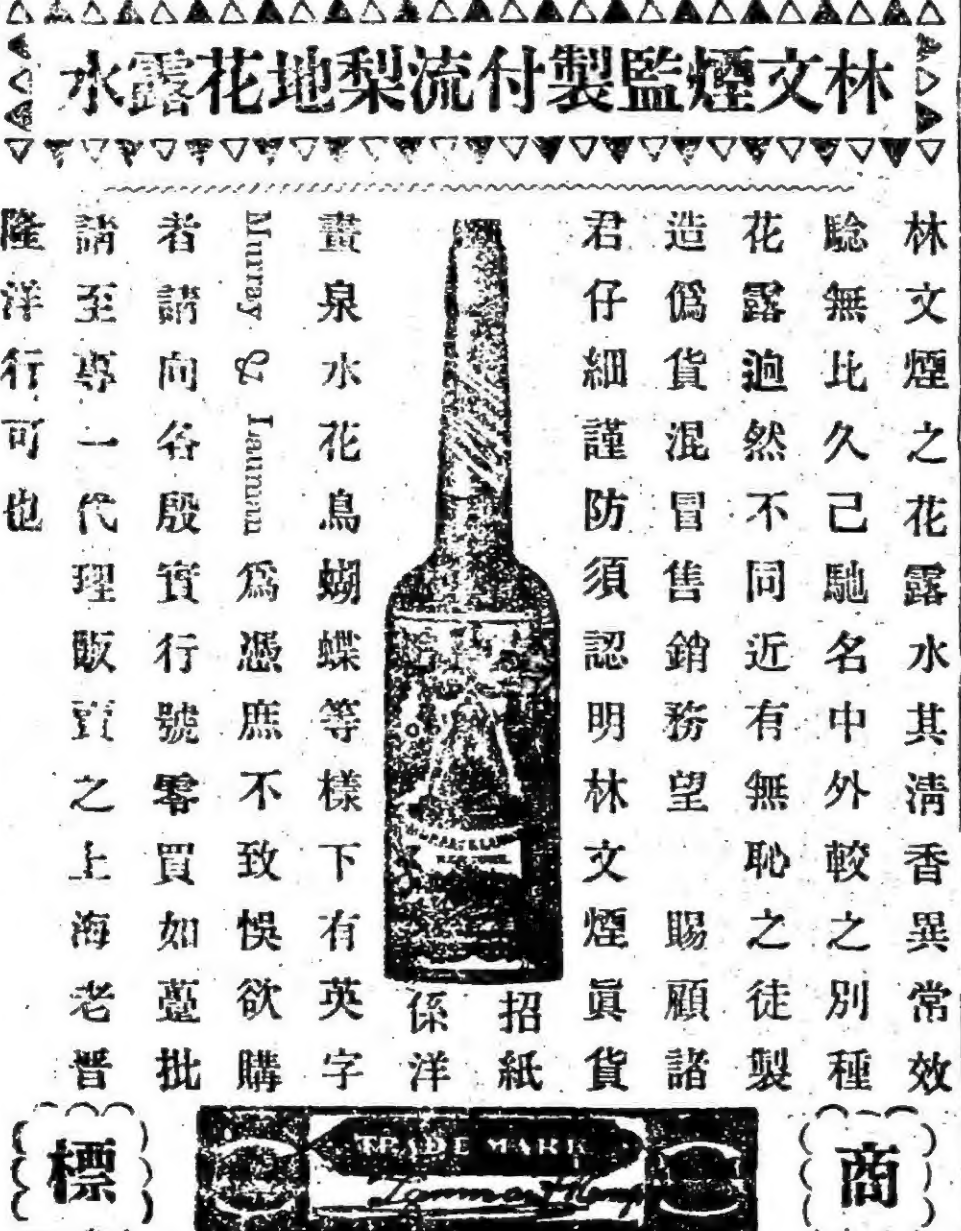 林文煙監製付流梨地花露水
林文煙之花露水其清香異常效
騐無比久己馳名中外較之別種
花露逈然不同近有無恥之徒製
造僞貨混冒售銷務望 賜顧諸
君仔細謹防須認明林文煙眞貨
招紙
係洋
畫泉水花鳥蝴蝶等樣下有英字
Murray & Lanman 爲憑庶不致悞欲購
者請向各殷實行號零買如躉批
請至專一代理販賣之上海老晋
隆洋行可也
商標
TRADE MARK